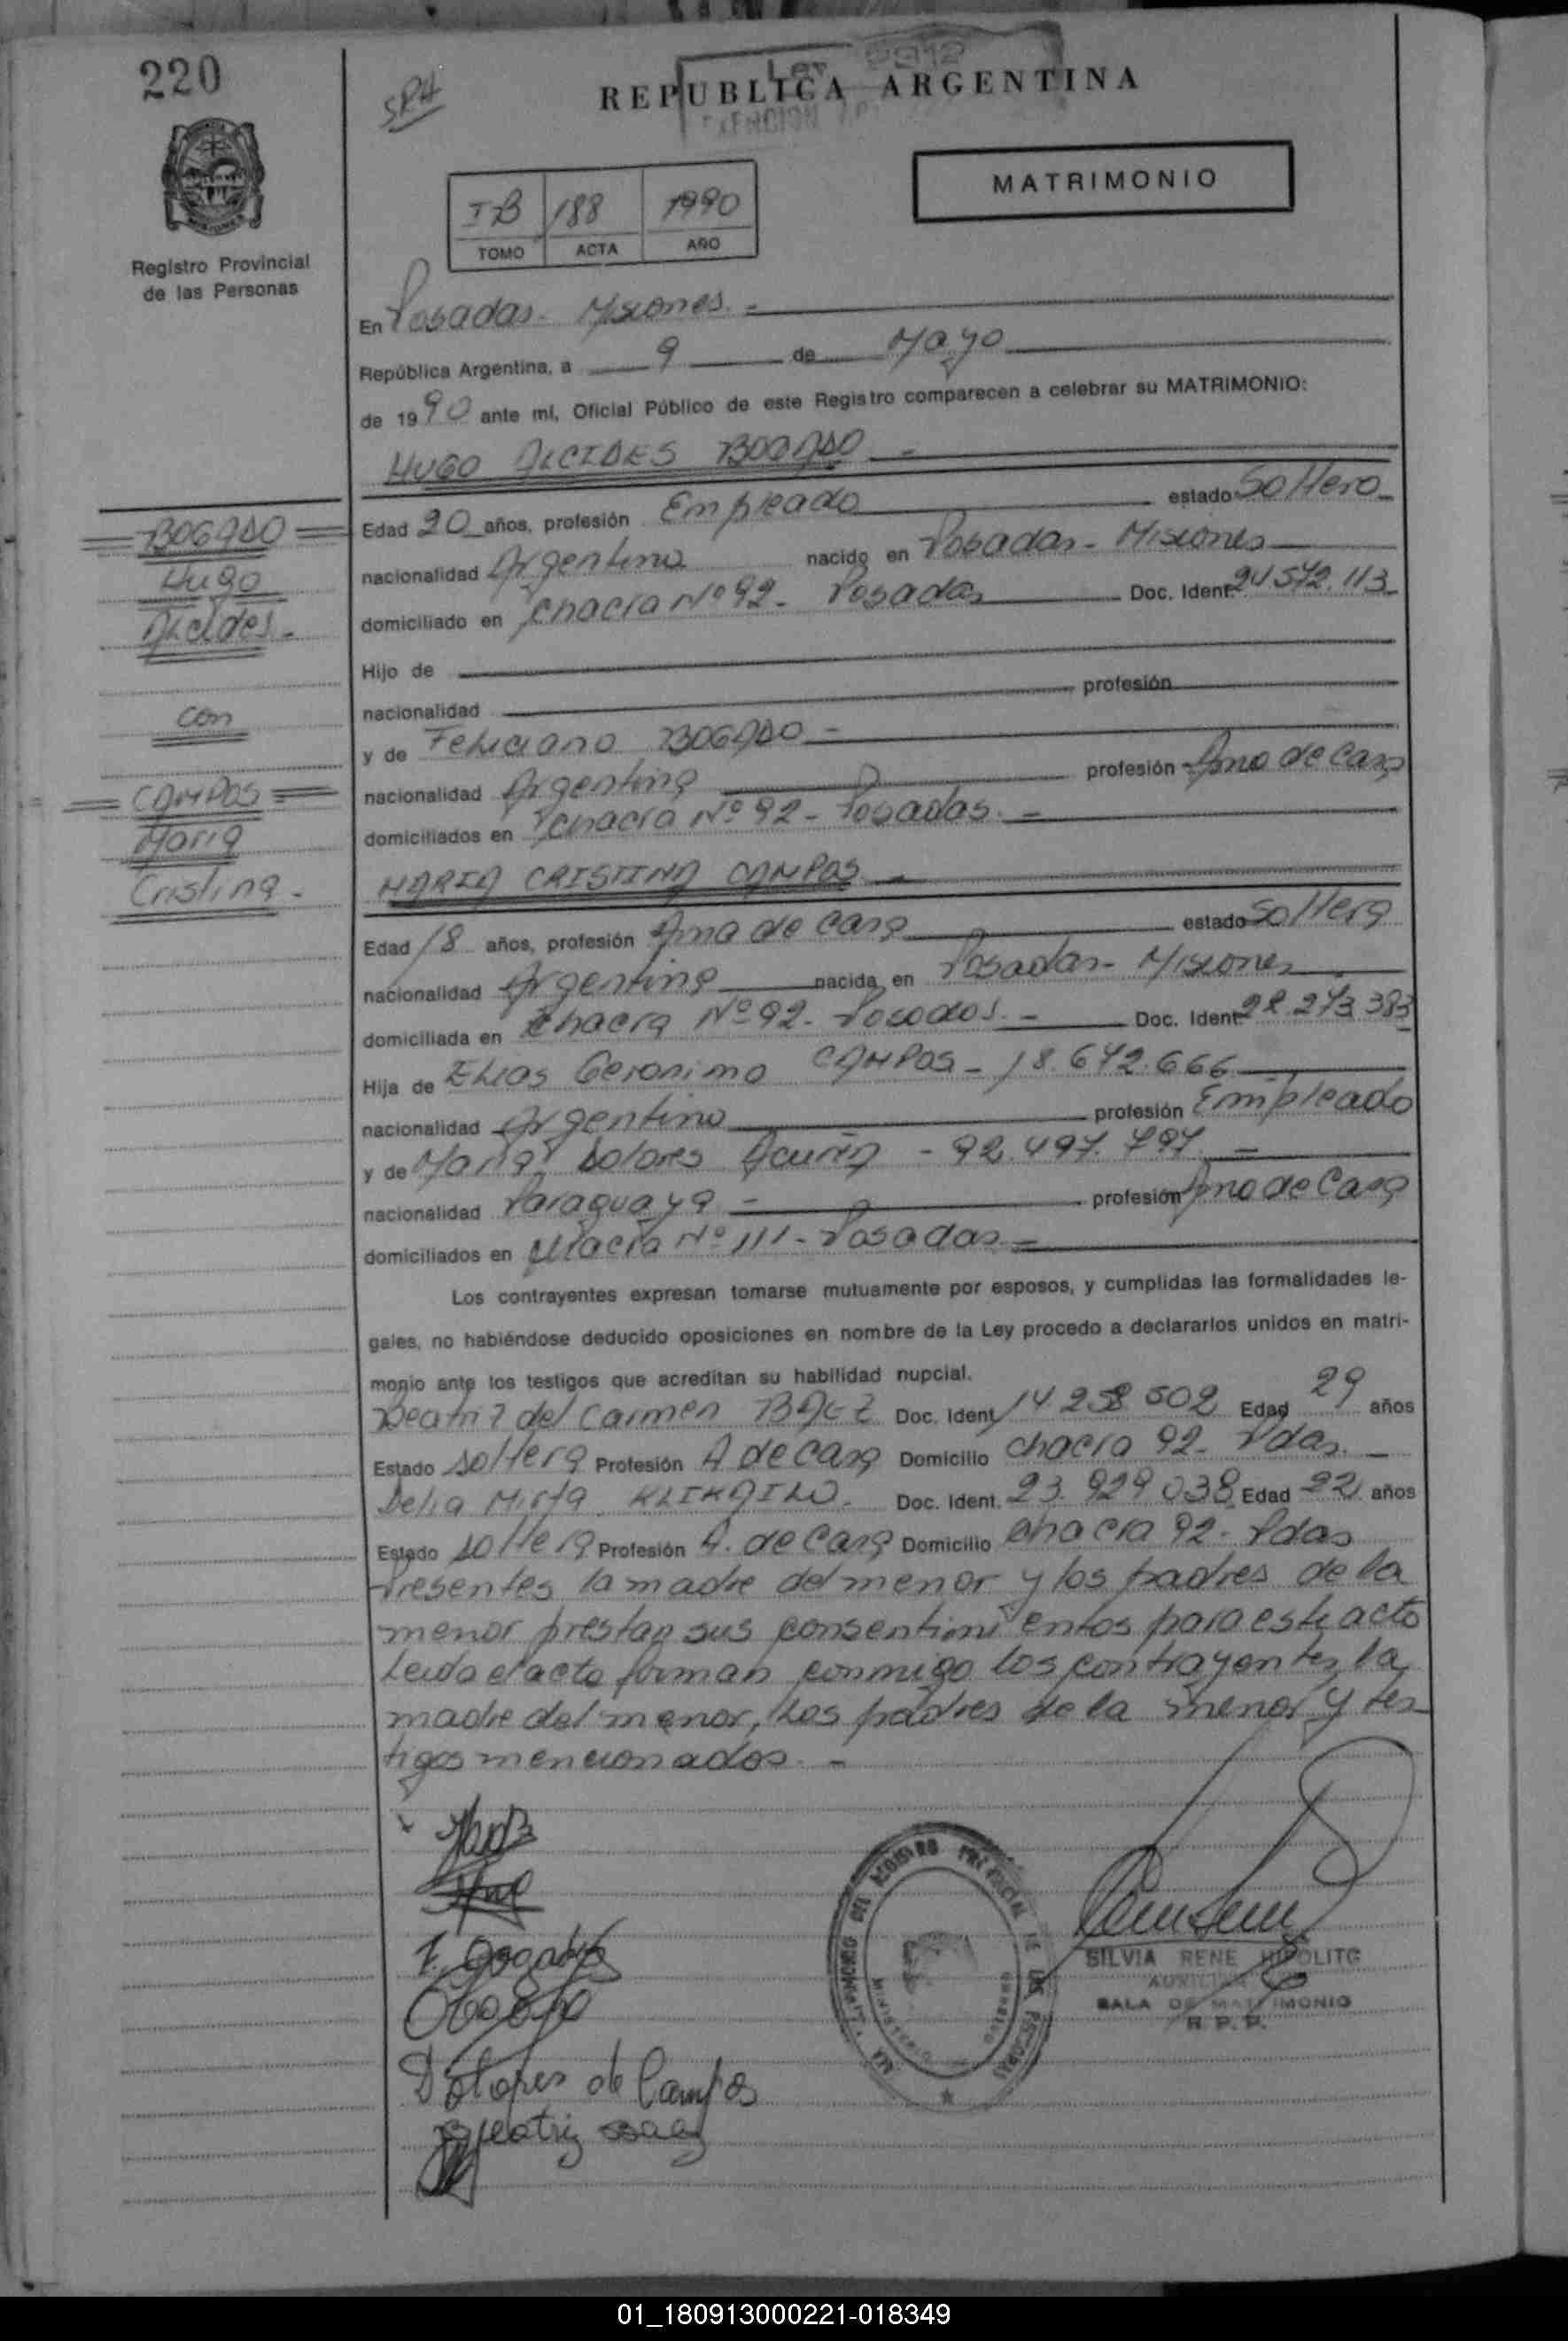 220
REPUBLICA ARGENTINA
Ley 2912
MATRIMONIO
188 1990
TOMO ACTA AÑO
Registro Provincial
de las Personas
En Posadas - Misiones. -
República Argentina, a 9 de Mayo
de 1990 ante mí, Oficial Público de este Registro comparecen a celebrar su MATRIMONIO:
HUGO ALCIDES BOGADO -
BOGADO
Hugo
Alcides -
con
CAMPOS
Maria
Cristina -
Edad 20 años, profesión Empleado estado Soltero
nacionalidad Argentino nacido en Posadas - Misiones
domiciliado en Chacra Nº 92 - Posadas Doc. Ident. 21 572.113
Hijo de
nacionalidad profesión
y de Feliciana BOGADO -
nacionalidad Argentina profesión Ama de Casa
domiciliados en Chacra Nº 92 - Posadas. -
MARIA CRISTINA CAMPOS -
Edad 18 años, profesión Ama de Casa estado Soltera
nacionalidad Argentina nacida en Posadas - Misiones
domiciliada en Chacra Nº 92 - Posadas. - Doc. Ident. 28.273.383
Hija de Elias Geronimo CAMPOS - 18.642.666
nacionalidad Argentino profesión Empleado
y de Maria Dolores Acuña - 92.497.797 -
nacionalidad Paraguaya - profesión Ama de Casa
domiciliados en Chacra Nº 111 - Posadas -
Los contrayentes expresan tomarse mutuamente por esposos, y cumplidas las formalidades le-
gales, no habiéndose deducido oposiciones en nombre de la Ley procedo a declararlos unidos en matri-
monio ante los testigos que acreditan su habilidad nupcial.
Beatriz del Carmen BAEZ Doc. Ident. 14 258 502 Edad 29 años
Estado soltera Profesión A de Casa Domicilio chacra 92 - Pdas. -
Delia Mirta Doc. Ident. 23.929 038 Edad 22 años
Estado soltera Profesión A. de Casa Domicilio chacra 92 - Pdas
Presentes la madre del menor y los padres de la
menor prestan sus consentimientos para este acto
Leida el acta firman conmigo los contrayentes, la
madre del menor, los padres de la menor y tes-
tigos mencionados. -
Dolores de Campos
Beatriz Baez
SILVIA RENE HIPOLITO
AUXILIAR
SALA DE MATRIMONIO
R. P. P.
01_180913000221-018349